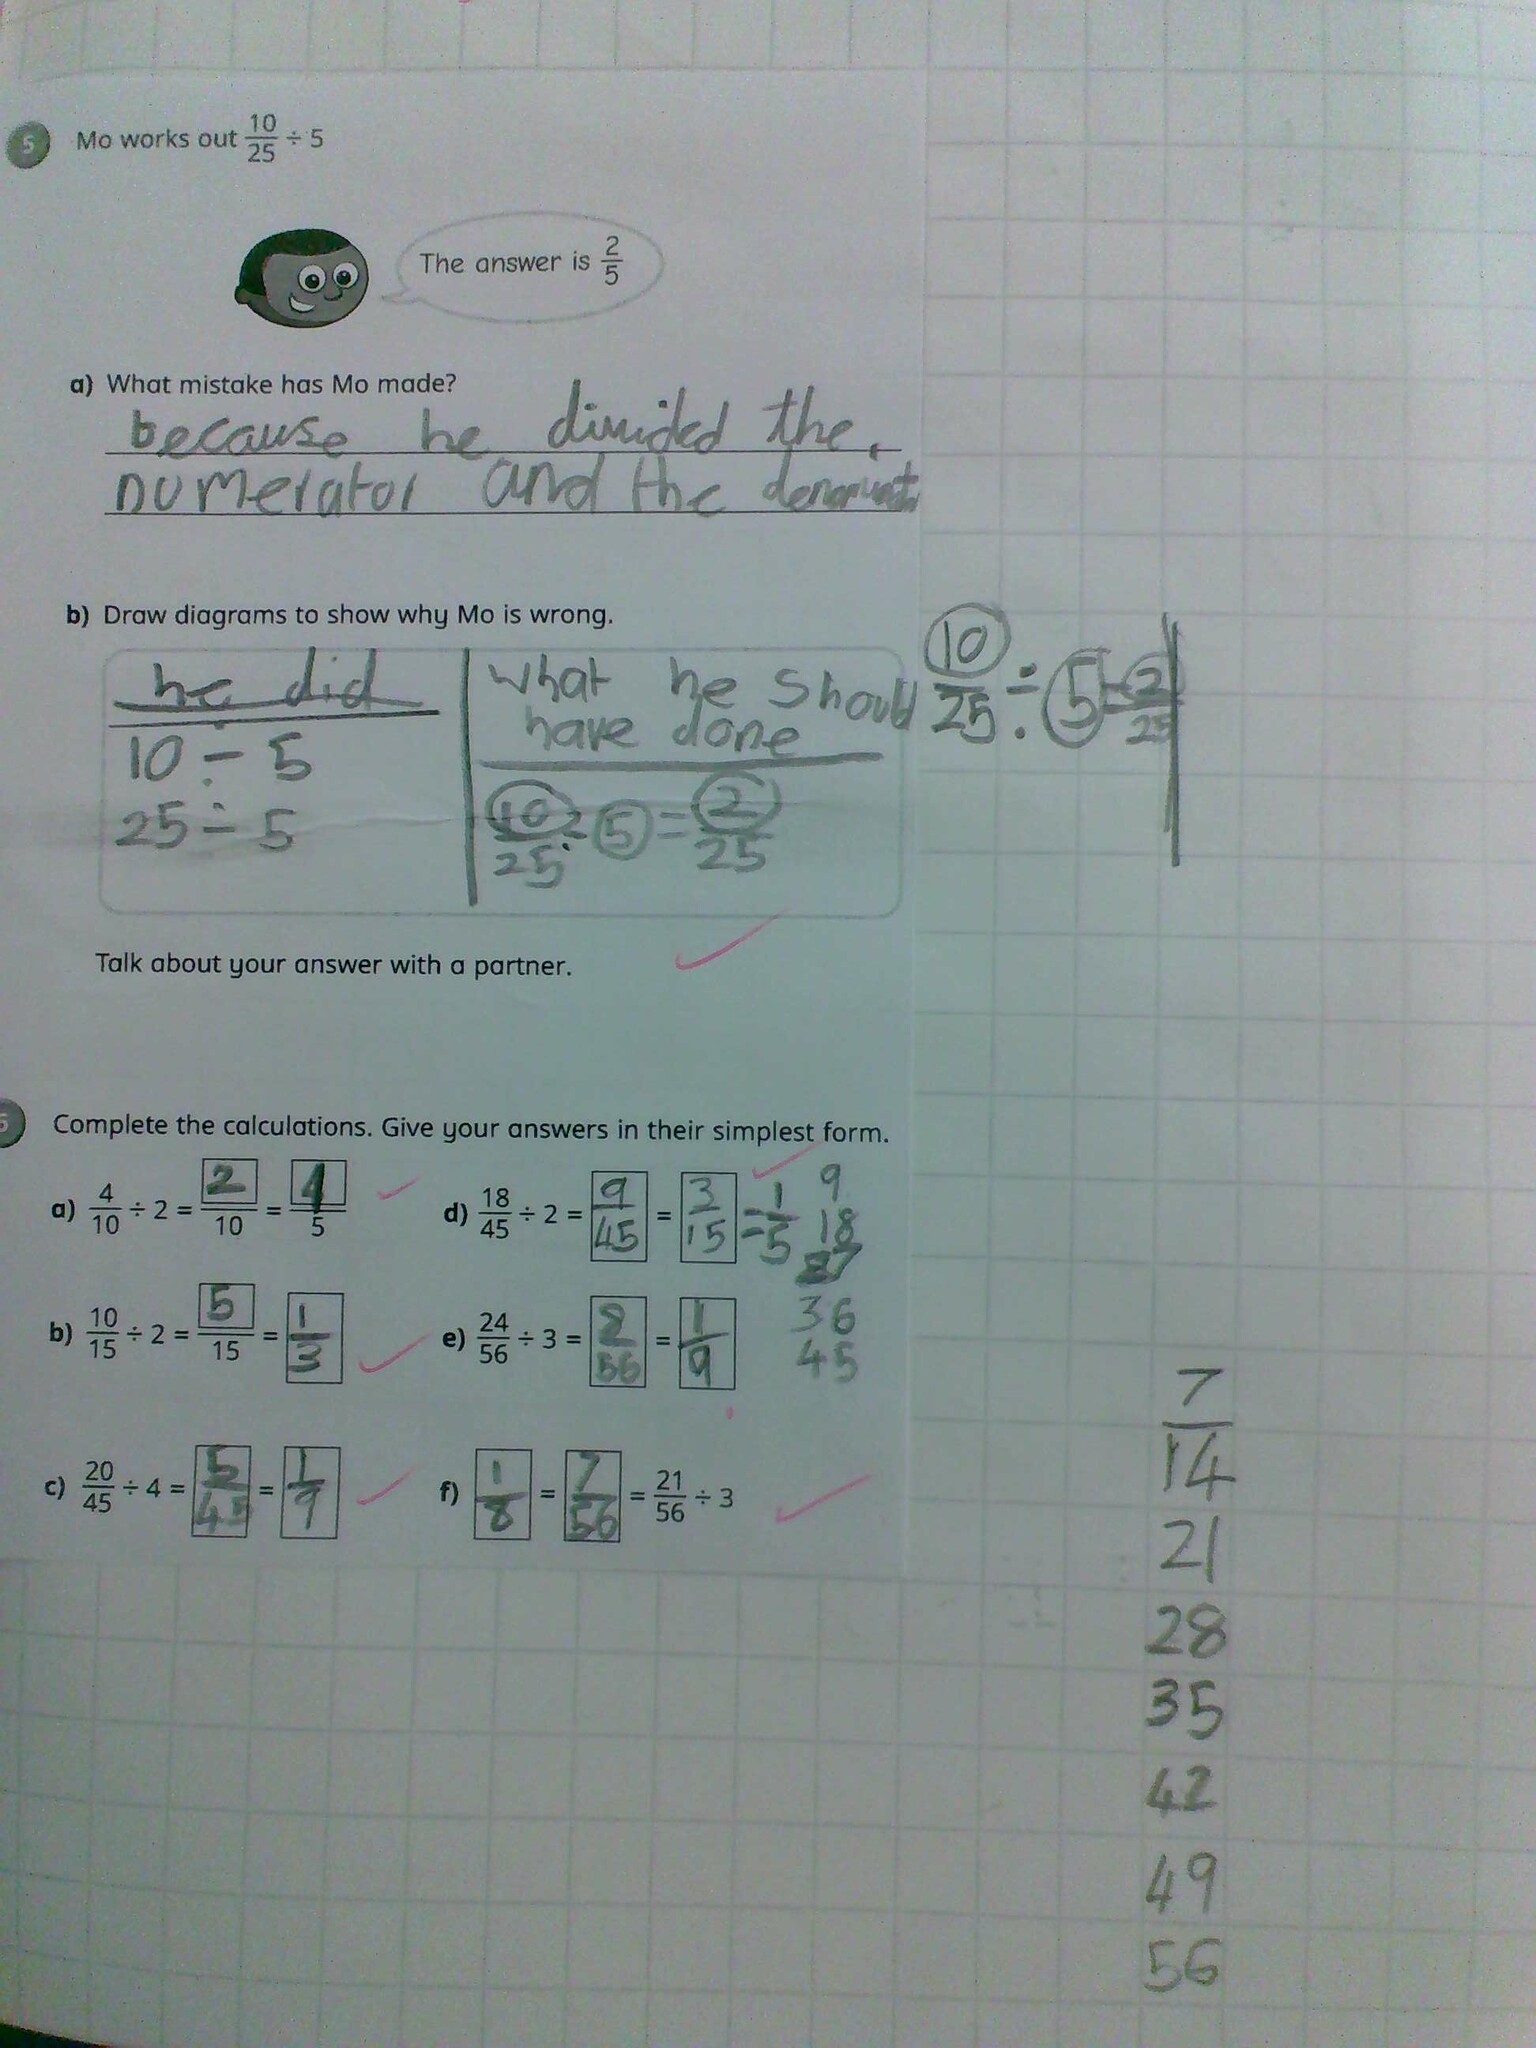 5 Mo works out 10/25 ÷ 5
The answer is 2/5
a) What mistake has Mo made?
because he divided the
numerator and the
b) Draw diagrams to show why Mo is wrong.
he did
10 ÷ 5
25 ÷ 5
what he should
have done
10/25 ÷ 5 = 2/25
10/25 ÷ 5 = 2/25
Talk about your answer with a partner.
6 Complete the calculations. Give your answers in their simplest form.
a) 4/10 ÷ 2 = 2/10 = 1/5
d) 18/45 ÷ 2 = 9/45 = 3/15 = 1/5
9
18
27
36
45
b) 10/15 ÷ 2 = 5/15 = 1/3
e) 24/56 ÷ 3 = 8/56 = 1/9
c) 20/45 ÷ 4 = 5/45 = 1/9
f) 1/8 = 7/56 = 21/56 ÷ 3
7
14
21
28
35
42
49
56